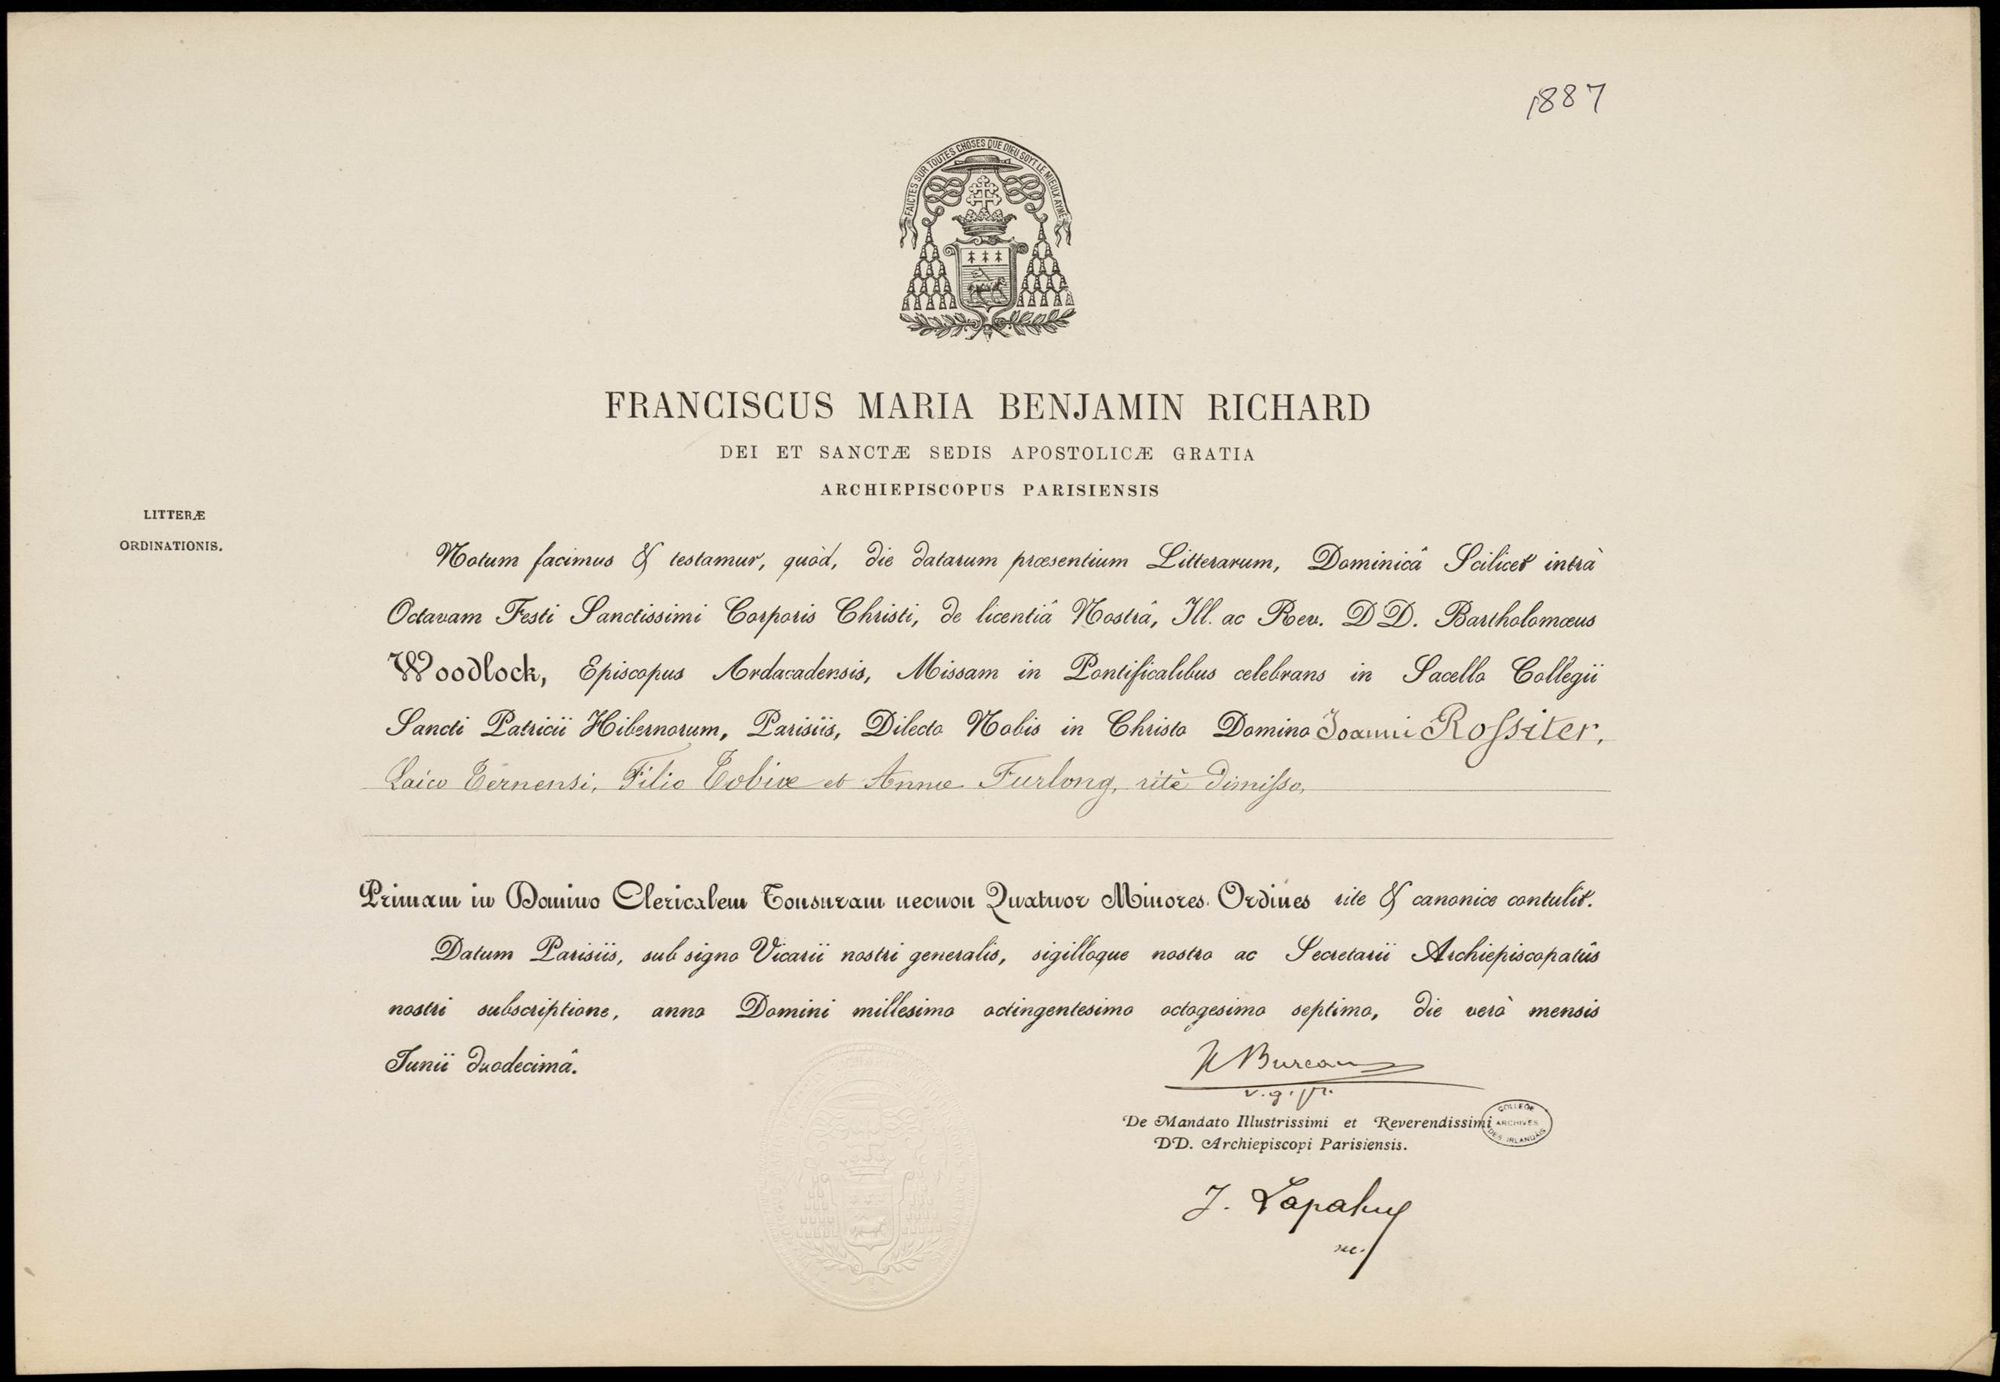 1887
FAICTES SUR TOUTES CHOSES QUE DIEU SOYT LE MIEULX AYMÉ
FRANCISCUS MARIA BENJAMIN RICHARD
DEI ET SANCTÆ SEDIS APOSTOLICÆ GRATIA
ARCHIEPISCOPUS PARISIENSIS
LITTERÆ
ORDINATIONIS.
Notum facimus & testamur, quòd, die datarum præsentium Litterarum, Dominicâ Scilicet intrà
Octavam Festi Sanctissimi Corporis Christi, de licentiâ Nostrâ, Ill. ac Rev. DD. Bartholomæus
Woodlock, Episcopus Ardacadensis, Missam in Pontificalibus celebrans in Sacello Collegii
Sancti Patricii Hibernorum, Parisiis, Dilecto Nobis in Christo Domino Joanni Rossiter,
Laico Fernensi, Filio Tobiæ et Annæ Furlong, ritè dimisso,
Primam in Domino Clericalem Tonsuram necnon Quatuor Minores Ordines rite & canonice contulit.
Datum Parisiis, sub signo Vicarii nostri generalis, sigilloque nostro ac Secretarii Archiepiscopatûs
nostri subscriptione, anno Domini millesimo octingentesimo octogesimo septimo, die verò mensis
Junii duodecimâ.
Bureau
v. g.
De Mandato Illustrissimi et Reverendissimi
DD. Archiepiscopi Parisiensis.
COLLEGE DES IRLANDAIS
ARCHIVES
J.